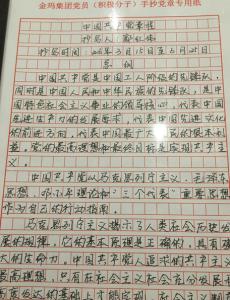 金玛集团党员（积极分子）手抄党章专用纸
中国共产党章程
抄写人
抄写时间：
总纲
中国共产党是中国工人阶级的先锋队，
同时是中国人民和中华民族的先锋队，是中
国特色社会主义事业的领导核心，代表中国
先进生产力的发展要求，代表中国先进文化
的前进方向，代表中国最广大人民的根本利
益。党的最高理想和最终目标是实现共产主
义。
中国共产党以马克思列宁主义、毛泽东
思想、邓小平理论和“三个代表”重要思想
作为自己的行动指南。
马克思列宁主义揭示了人类社会历史发
展的规律，它的基本原理是正确的，具有强
大的生命力。中国共产党人追求的共产主义
最高理想，只有在社会主义社会充分发展
高度发达的基础上才能实现。社会主义